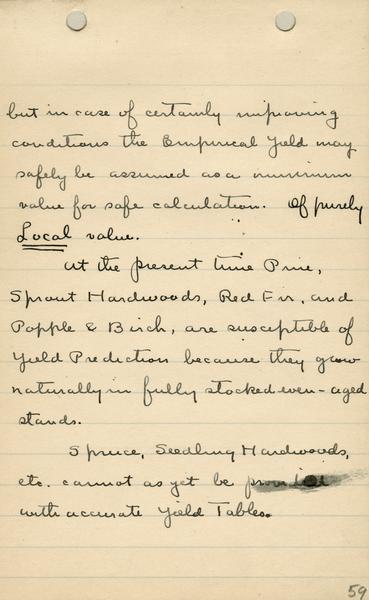 but in case of certainly improving
conditions the Empirical Yield may
safely be assumed as a minimum
value for safe calculation. Of purely
Local value.
At the present time Pine,
Sprout Hardwoods, Red Fir, and
Popple & Birch, are susceptible of
Yield Prediction because they grow
naturally in fully stocked even-aged
stands.
Spruce, Seedling Hardwoods,
etc. cannot as yet be provided
with accurate Yield Tables.
59